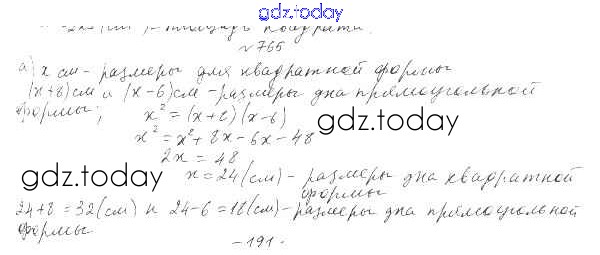 gdz.today
- 2x² (см²) - площадь квадрата.
№ 765
а) x см - размеры для квадратной формы
(x+8)см и (x-6)см - размеры дна прямоугольной
формы; x² = (x+8)(x-6)
gdz.today
x² = x² + 8x - 6x - 48
2x = 48
gdz.today
x = 24 (см) - размеры дна квадратной
формы
24+8 = 32 (см) и 24-6 = 18 (см) - размеры дна прямоугольной
формы
- 191 -